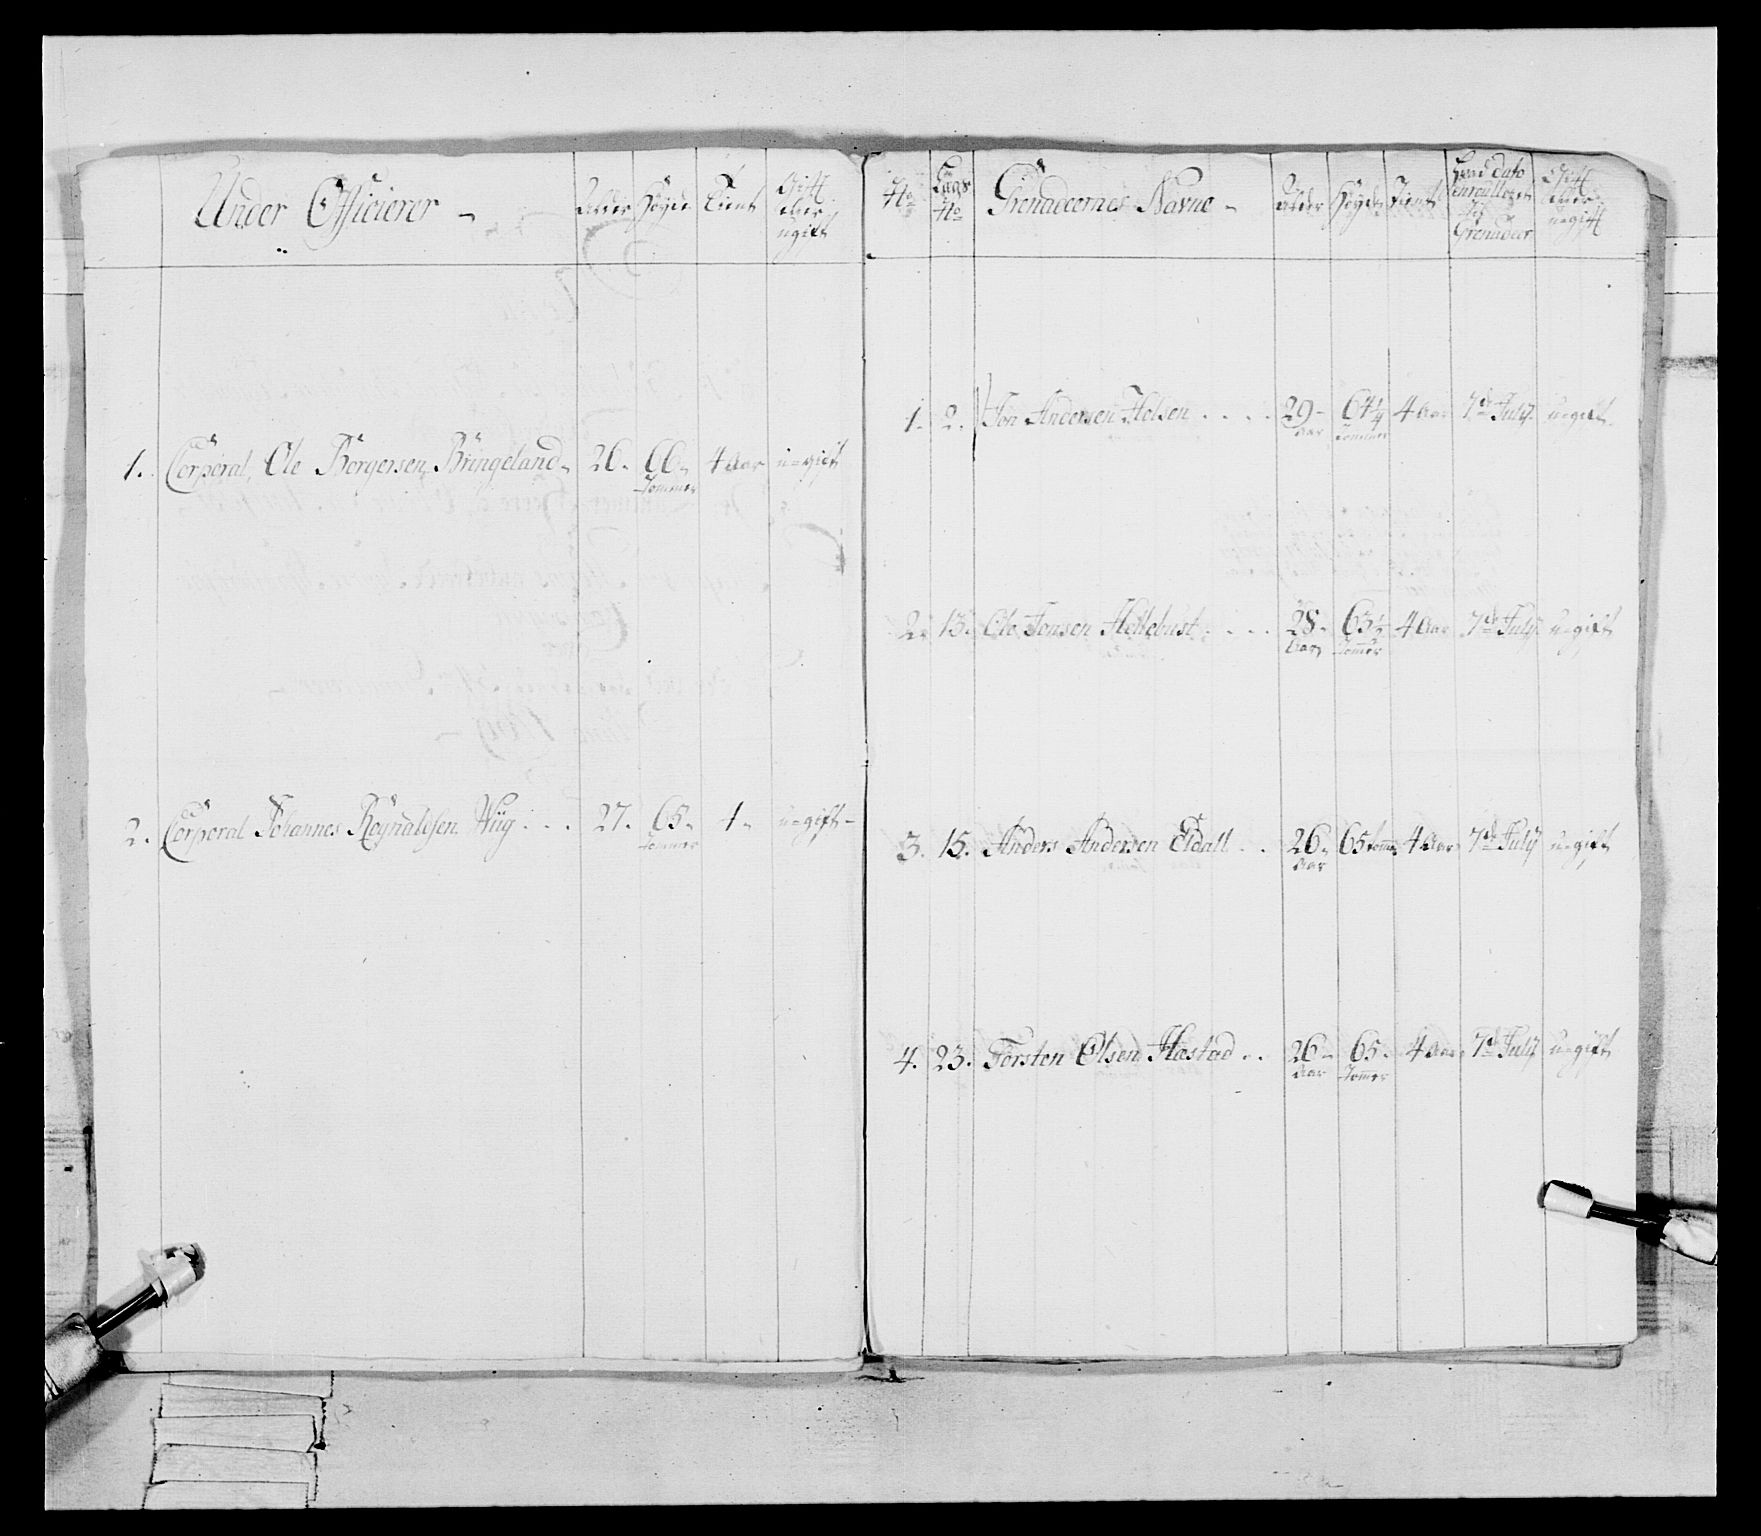 Under Officierer - Alder Høyde Tient Gift eller ugift
1. Corporal, Ole Børgersen Bringeland - 26. 66 - Tommer 4 Aar u=gift
2. Corporal Johannes Rognaldsen Wiig . . . 27. 65 - Tommer 4 - u=gift -
No Lægs No Grenadeernes Navne - Alder Høyde Tient Hvad Dato enroulleret til Grenadeer Gift eller u=gift
1. 2. Jon Andersen Holsen . . . . 29 - Aar 64 1/4 Tommer 4 Aar 7de July u=gift
2. 13. Ole Jensen Hellebust . . . . 28 - Aar 65 1/2 Tommer 4 Aar 7de July u=gift
3. 15. Anders Andersen Eldall . . 26 - Aar 65 Tommer 4 Aar 7de July u=gift
4. 23. Torsten Olsen Hastad . . 26 - Aar 65 - Tommer 4 Aar 7de July u=gift